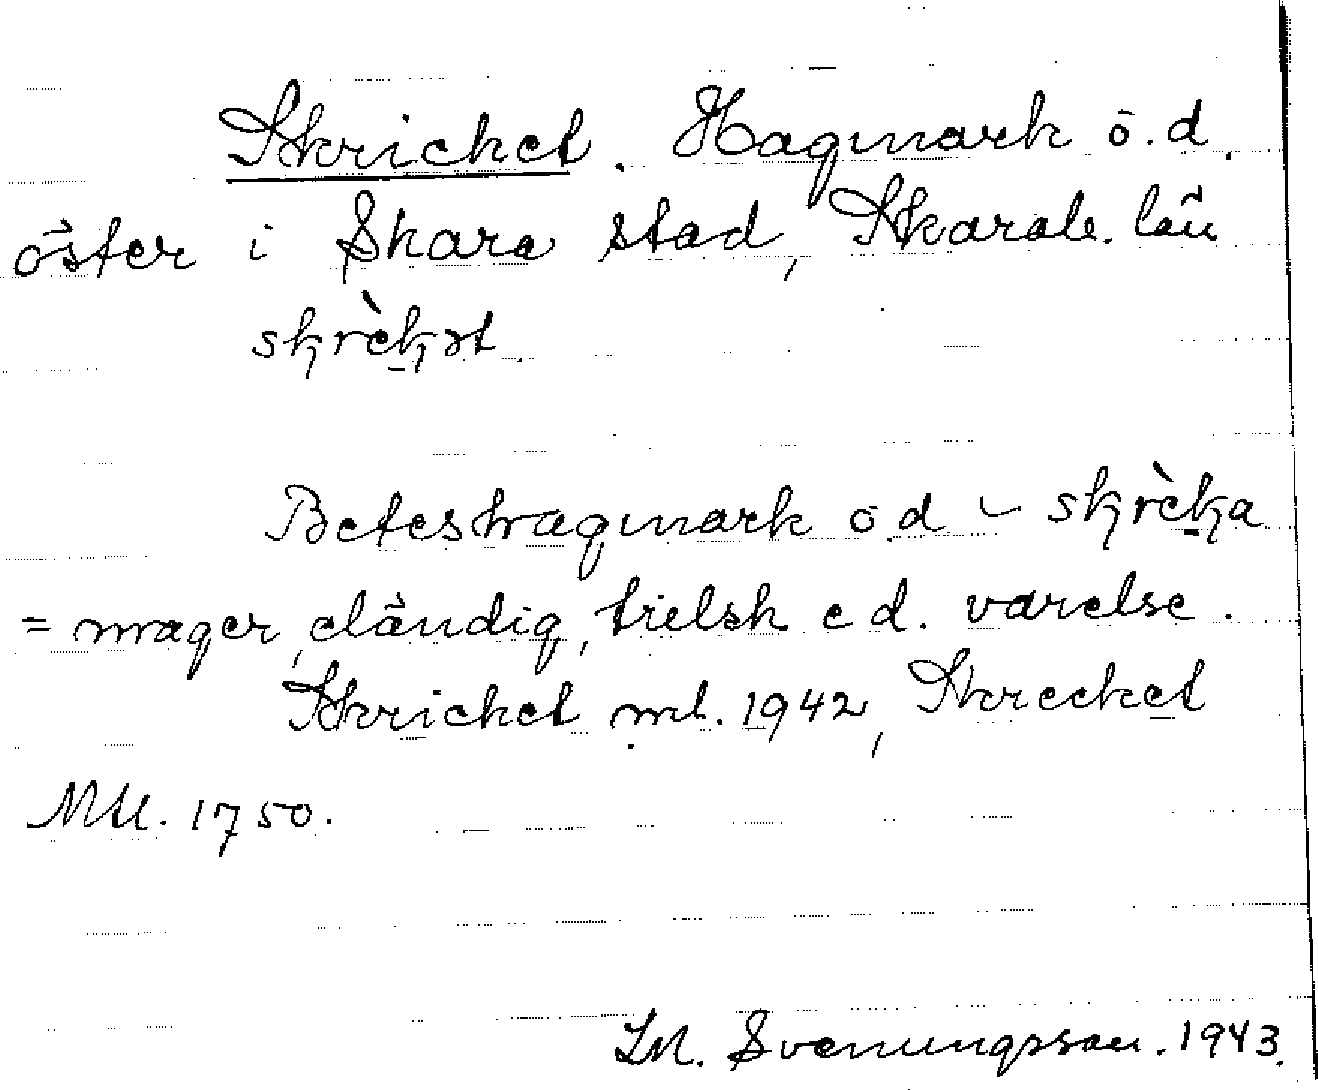 Skricket. Hagmark ö.d.
öster i Skara stad, Skarab. län
skrèkət
Beteshagmark o d ~ skrèka
= mager, eländig, trelsk e d. varelse.
Skricket ml. 1942, Skrecket
MU. 1750.
LM. Svenungsson. 1943.